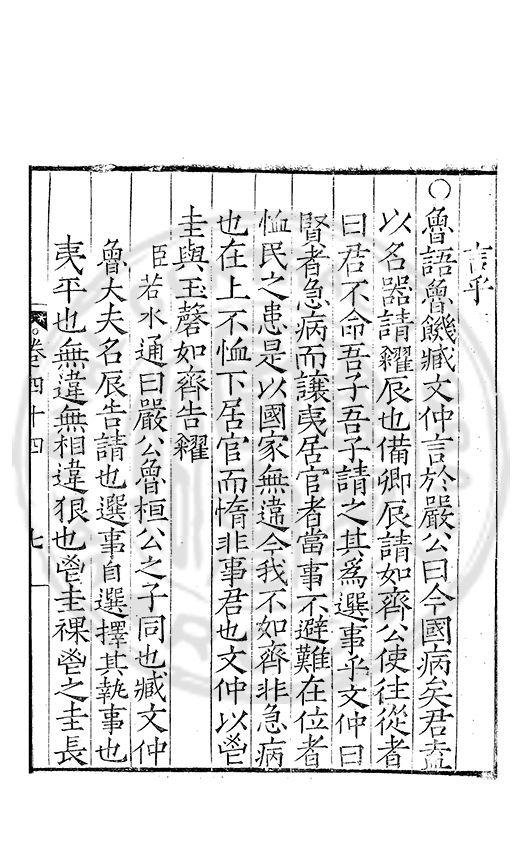 言乎
○魯語魯饑臧文仲言於嚴公曰今國病矣君盍
以名器請糴辰也備卿辰請如齊公使往從者
曰君不命吾子吾子請之其為選事乎文仲曰
賢者急病而讓夷居官者當事不避難在位者
恤民之患是以國家無違今我不如齊非急病
也在上不恤下居官而惰非事君也文仲以鬯
圭與玉磬如齊告糴
臣若水通曰嚴公魯桓公之子同也臧文仲
魯大夫名辰告請也選事自選擇其執事也
夷平也無違無相違狠也鬯圭祼鬯之圭長
卷四十四 七